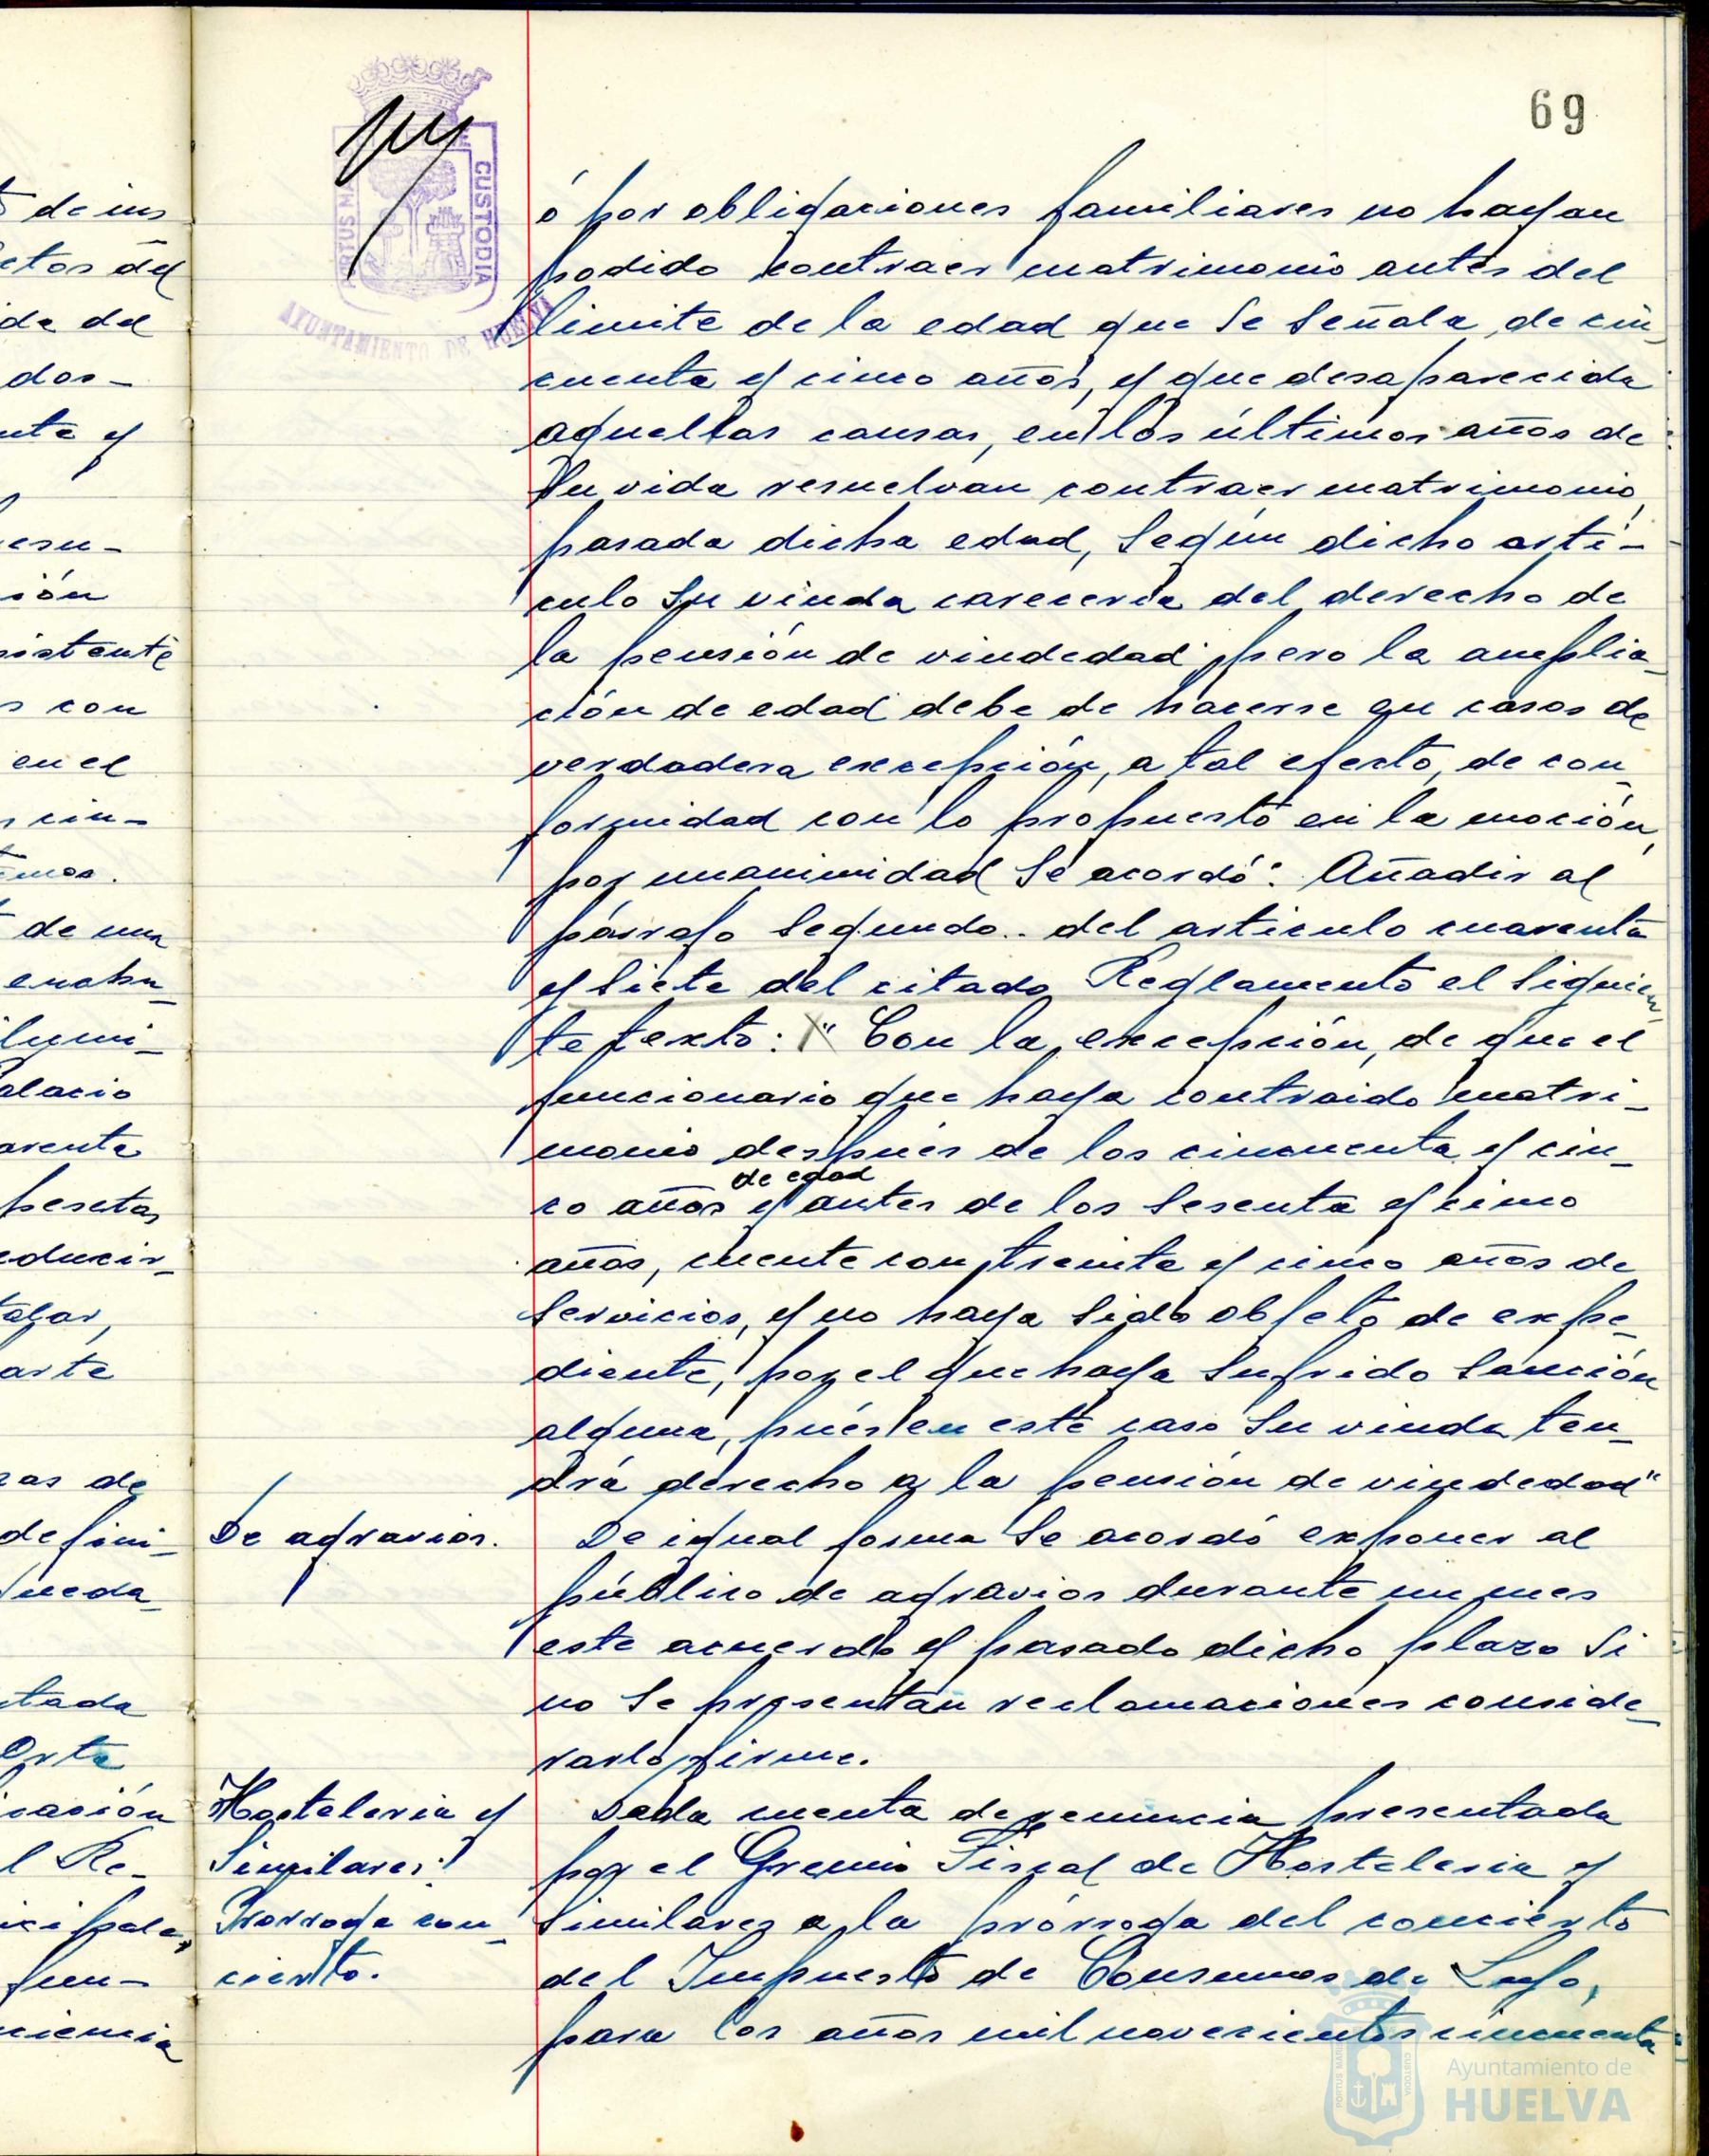 69
PORTUS MA
CUSTODIA
AYUNTAMIENTO DE HUELVA
ó por obligaciones familiares no hayan
podido contraer matrimonio antes del
limite de la edad que se señala, de cin
cuenta y cinco años, y que desaparecida
aquellas causas, en los últimos años de
su vida resuelvan contraer matrimonio,
pasada dicha edad, según dicho artí-
culo su viuda careceria del derecho de
la pensión de viudedad, pero la amplia_
ción de edad debe de hacerse en casos de
verdadera excepción, a tal efecto, de con_
formidad con lo propuesto en la moción,
por unanimidad se acordó: Añadir al
párrafo segundo.. del articulo cuarenta
y siete del citado Reglamento el siguien_
te texto: " Con la excepción, de que el
funcionario que haya contraido matri_
monio después de los cincuenta y cin_
de edad
co años y antes de los sesenta y cinco
años, cuente con treinta y cinco años de
servicios, y no haya sido objeto de expe_
diente, por el que haya sufrido sanción
alguna, pués en este caso su viuda ten_
drá derecho a la pensión de viudedad"
De agravios.
De igual forma se acordó exponer al
público de agravios durante un mes
este acuerdo y pasado dicho plazo si
no se presentan reclamaciones conside_
rarlo firme.
Hosteleria y
Similares:
Prorroga con_
cierto.
Dada cuenta de renuncia presentada
por el Gremio Fiscal de Hosteleria y
Similares a la prórroga del concierto
del Impuesto de Consumos de Lujo,
para los años mil novecientos cincuenta
de ins
etos del
da del
dos_
nta y
esu_
ión
sistente
s con
en el
cin_
de una
enchu_
lumi_
alacio
arenta
pesetas
educir_
talar,
arte
zas de
defini_
queda_
tada
Orta
cación
l Re_
icipales,
fun_
ciencia
PORTUS MARIS
CUSTODIA
Ayuntamiento de
HUELVA